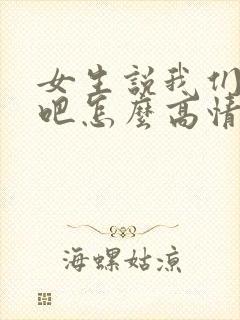 女生説我们
吧怎麼高情
海螺姑凉